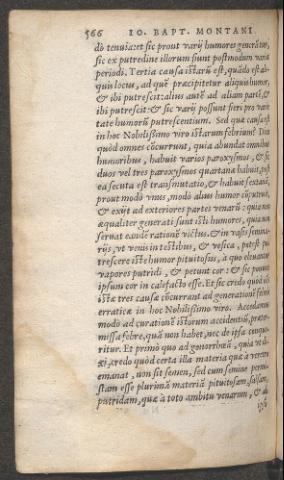 566 IO. BAPT. MONTANI
dò tenuia: et sic prout varij humores generātur,
sic ex putredine illorum fiunt postmodum varæ
periodi. Tertia causa istarū est, quādo est ali-
quis locus, ad quē præcipitetur aliquis humor,
& ibi putrescit: alius autē ad aliam partē, &
ibi putrescit: & sic varij possunt fieri pro varie
tate humorū putrescentium. Sed quæ causa est
in hoc Nobilissimo viro istarum febrium? Dico
quòd omnes cōcurrunt, quia abundat omnibus
humoribus, habuit varios paroxysmos, & sic
duos vel tres paroxysmos quartana habuit, post
ea secuta est transmutatio, & habuit sextanā,
prout modò vnus, modò alius humor cōputruit,
& exijt ad exteriores partes venarū: quia non
æqualiter generati sunt isti humores, quia non
seruat eandē rationē victus. & in vasis semina-
rijs, vt venis in testibus, & vesica, potest pu
trescere iste humor pituitosus, à quo eleuantur
vapores putridi, & petunt cor: & sic ponunt
ipsum cor in calefacto esse. Et sic credo quòd oēs
istæ tres causæ cōcurrant ad generationē febris
erraticæ in hoc Nobilissimo viro. Accedamus
modò ad curationē istorum accidentiū, præter-
missa febre, quā non habet, nec de ipsa conque-
ritur. Et primò quo ad gonorrhœā, quia vt di-
xi, credo quòd certa illa materia quæ à verētro
emanat, non sit semen, sed cum semine permi-
stam esse plurimā materiā pituitosam, salsam,
putridam, quæ à toto ambitu venarum, & à